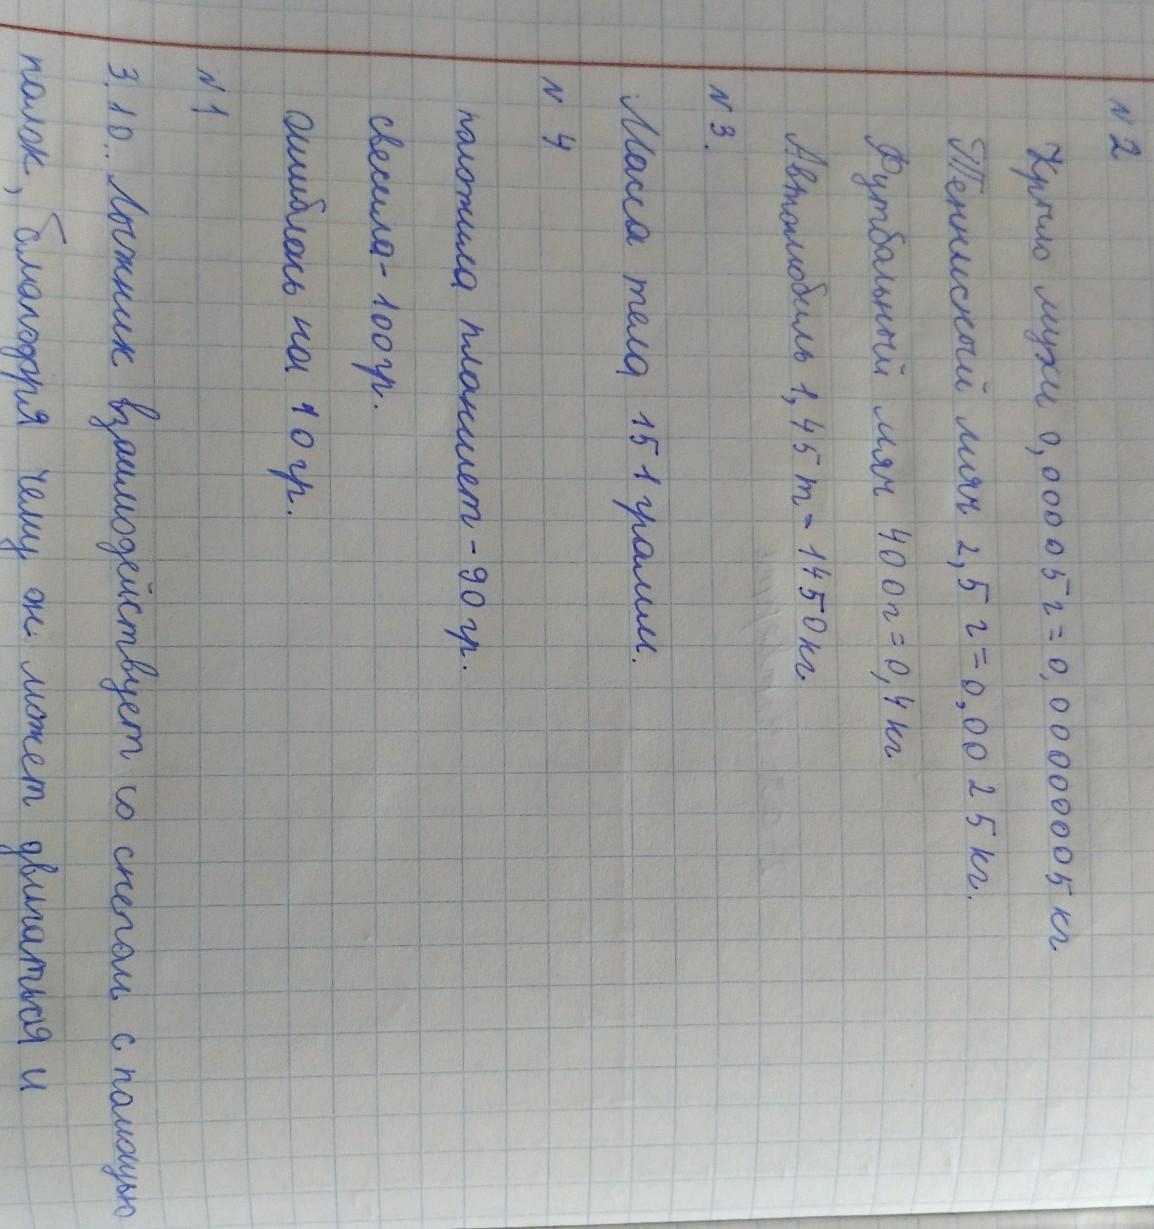 N 2
Крыло мухи 0,00005г=0,00000005 кг
Теннисный мяч 2,5 г=0,0025 кг.
Футбольный мяч 400г=0,4 кг
Автомобиль 1,45 т - 1450 кг
N 3.
Масса тела 151 грамм.
N 4
положила планшет - 90 гр.
свесила - 100гр.
Ошиблась на 10 гр.
N 1
3.10.. Лыжник взаимодействует со снегом с помощью
палок, благодаря чему он может двигаться и